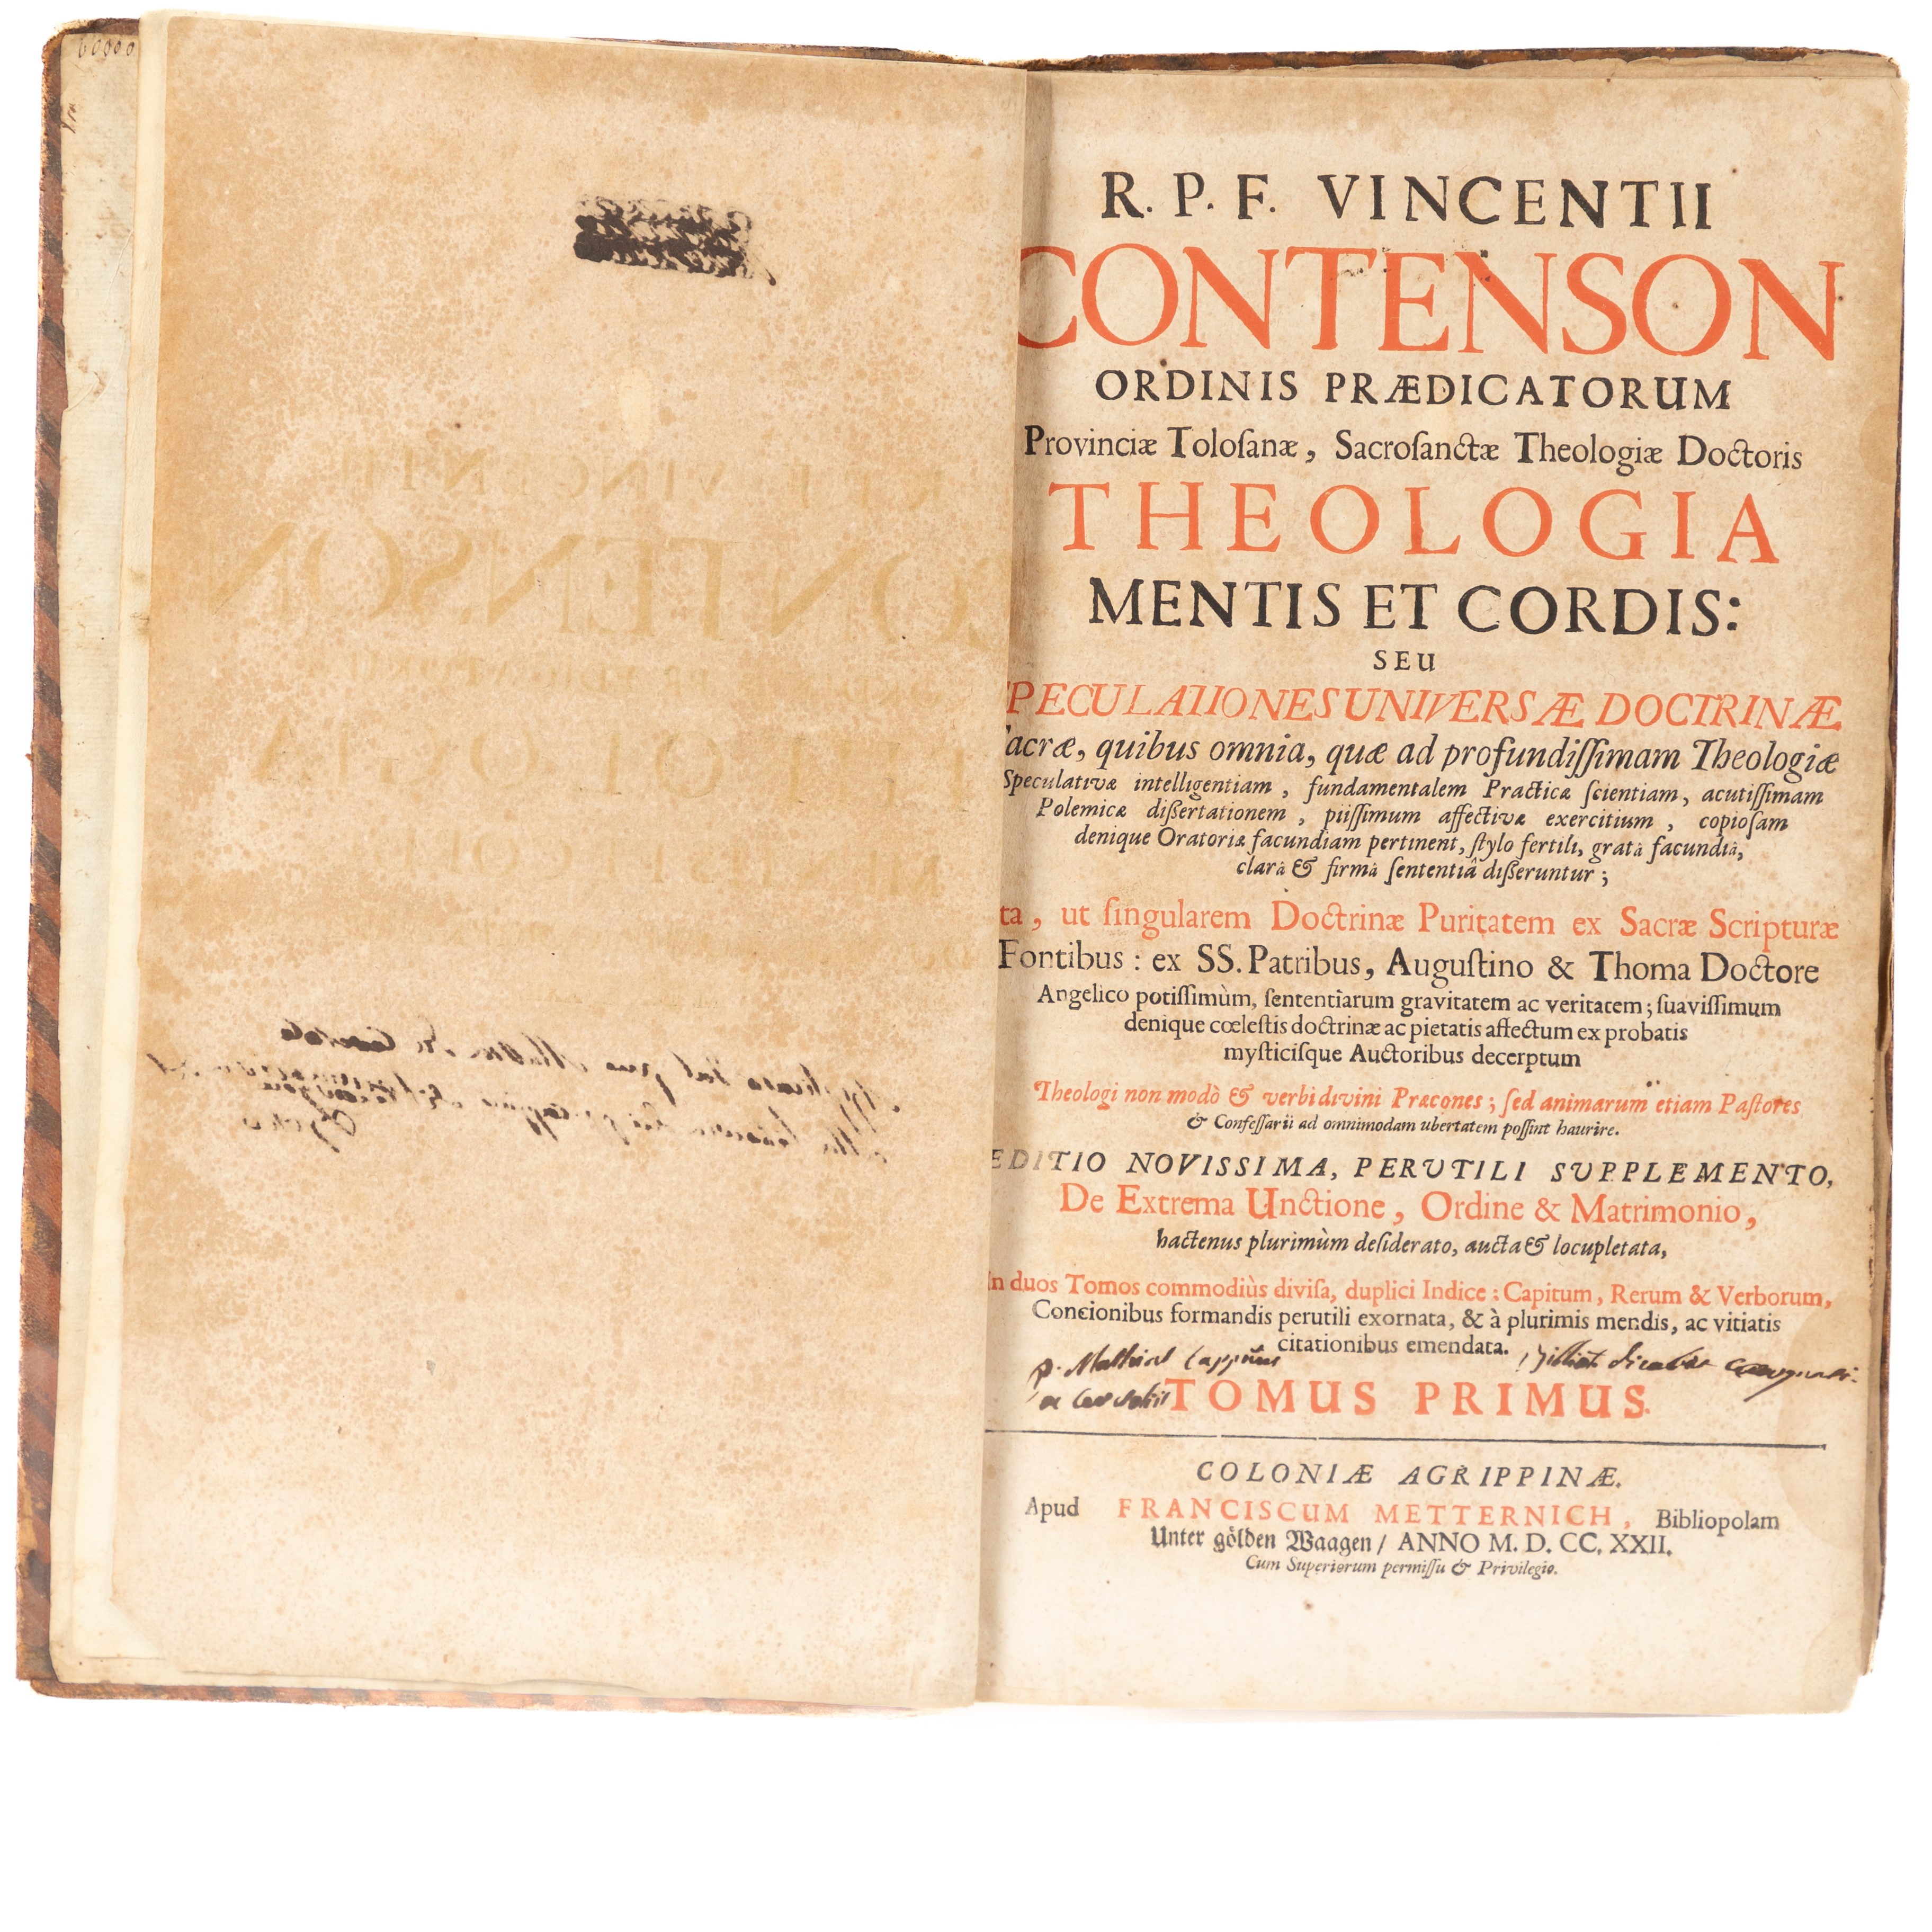 60000
R. P. F. VINCENTII
CONTENSON
ORDINIS PRÆDICATORUM
Provinciæ Toloſanæ, Sacroſanctæ Theologiæ Doctoris
THEOLOGIA
MENTIS ET CORDIS:
SEU
PECULATIONES UNIVERSÆ DOCTRINÆ
acræ, quibus omnia, quæ ad profundiſſimam Theologiæ
Speculativæ intelligentiam, fundamentalem Practicæ ſcientiam, acutiſſimam
Polemicæ dißertationem, piiſſimum affectivæ exercitium, copioſam
denique Oratoriæ facundiam pertinent, ſtylo fertili, gratâ facundiâ,
clarâ & firmâ ſententiâ dißeruntur;
ta, ut ſingularem Doctrinæ Puritatem ex Sacræ Scripturæ
Fontibus: ex SS. Patribus, Auguſtino & Thoma Doctore
Angelico potiſſimùm, ſententiarum gravitatem ac veritatem; ſuaviſſimum
denique cœleſtis doctrinæ ac pietatis affectum ex probatis
myſticiſque Auctoribus decerptum
Theologi non modò & verbi divini Præcones; ſed animarum etiam Paſtores
& Confeſſarii ad omnimodam ubertatem poſſint haurire.
EDITIO NOVISSIMA, PERUTILI SUPPLEMENTO,
De Extrema Unctione, Ordine & Matrimonio,
hactenus plurimùm deſiderato, aucta & locupletata,
In duos Tomos commodiùs diviſa, duplici Indice: Capitum, Rerum & Verborum,
Concionibus formandis perutili exornata, & à plurimis mendis, ac vitiatis
citationibus emendata.
TOMUS PRIMUS.
COLONIÆ AGRIPPINÆ.
Apud FRANCISCUM METTERNICH, Bibliopolam
Unter gölden Waagen / ANNO M. D. CC. XXII.
Cum Superiorum permiſſu & Privilegio.